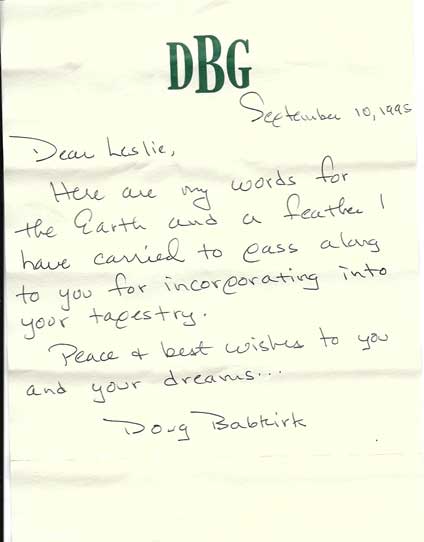 DBG
September 10, 1995
Dear Leslie,
Here are my words for
the Earth and a feather I
have carried to pass along
to you for incorporating into
your tapestry.
Peace & best wishes to you
and your dreams...
Doug Babkirk